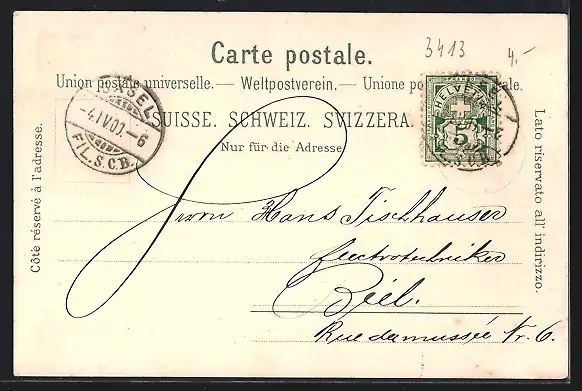 3413
4,-
Carte postale.
Union postale universelle. — Weltpostverein. — Unione postale
SUISSE. SCHWEIZ. SVIZZERA.
Nur für die Adresse
Côté réservé à l'adresse.
Lato riservato all' indirizzo.
BASEL
-4.IV00.-6
FIL.S.C.B.
HELVETIA
5
Herrn Hans Tischhauser
Electrotechniker
Biel.
Rue du musée Nr. 6.